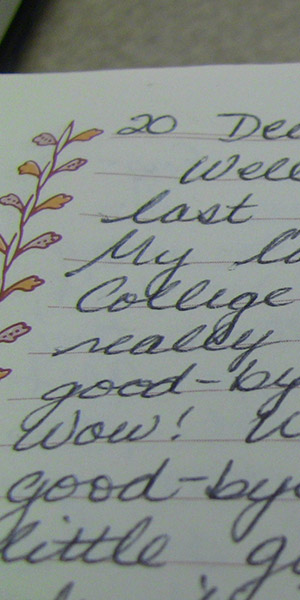 20 Dec
Well
last
My la
College
really
good-by
Wow! W
good-bye
little g